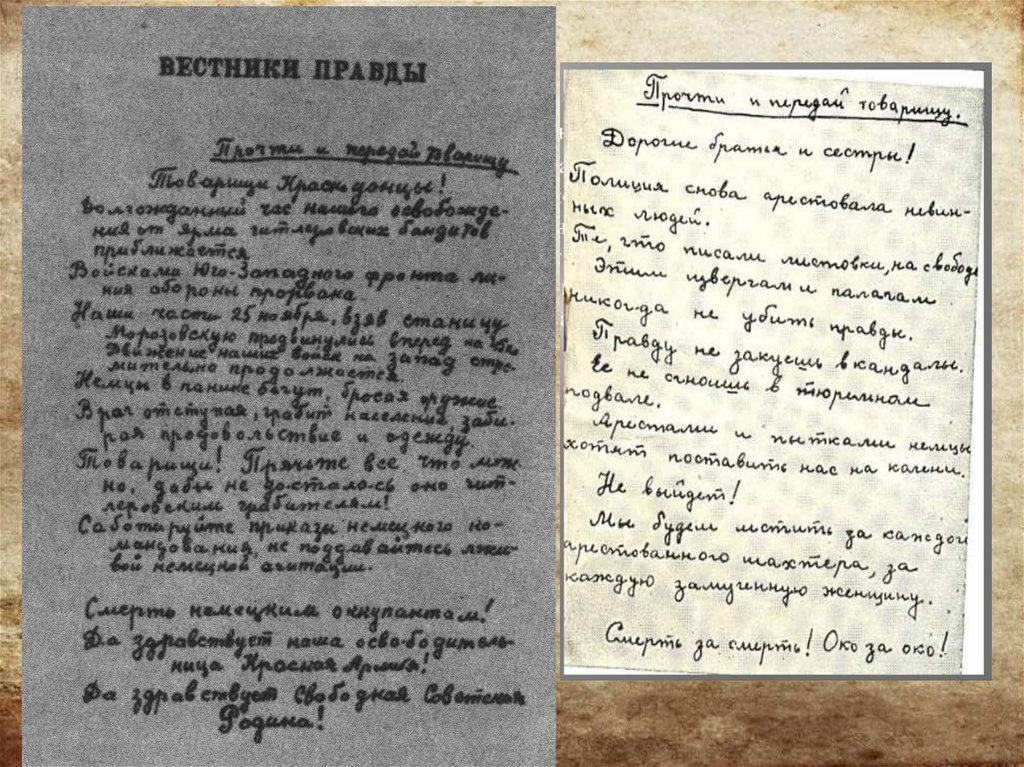 ВЕСТНИКИ ПРАВДЫ
Прочти и передай товарищу
Товарищи Краснодонцы!
Долгожданный час нашего освобожде-
ния от ярма гитлеровских бандитов
приближается
Войсками Юго-Западного фронта ли-
ния обороны прорвана
Наши части 25 ноября, взяв станицу
Морозовскую продвинулись вперед на
Движение наших войск на запад стре-
мительно продолжается.
Немцы в панике бегут, бросая оружие
Враг отступая, грабит население, заби-
рая продовольствие и одежду.
Товарищи! Прячьте все что мож-
но, дабы не досталось оно гит-
леровским грабителям!
Саботируйте приказы немецкого ко-
мандования, не поддавайтесь лжи-
вой немецкой агитации.
Смерть немецким оккупантам!
Да здравствует наша освободитель-
ница Красная Армия!
Да здравствует свободная Советская
Родина!
Прочти и передай товарищу.
Дорогие братья и сестры!
Полиция снова арестовала невин-
ных людей.
Те, что писали листовки, на свободе
Этим извергам и палачам
никогда не убить правды.
Правду не закуешь в кандалы.
Ее не сгноишь в тюремном
подвале.
Арестами и пытками немцы
хотят поставить нас на колени.
Не выйдет!
Мы будем мстить за каждого
арестованного шахтера, за
каждую замученную женщину.
Смерть за смерть! Око за око!